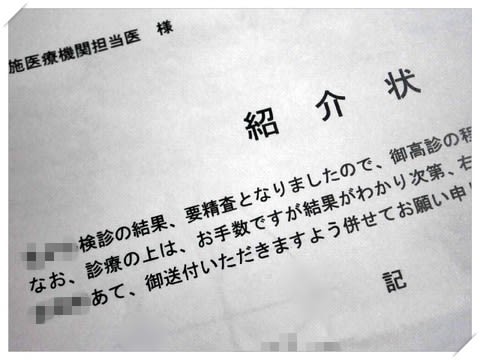 施医療機関担当医 様
紹介状
検診の結果、要精査となりましたので、御高診の程
なお、診療の上は、お手数ですが結果がわかり次第、右
あて、御送付いただきますよう併せてお願い申し
記